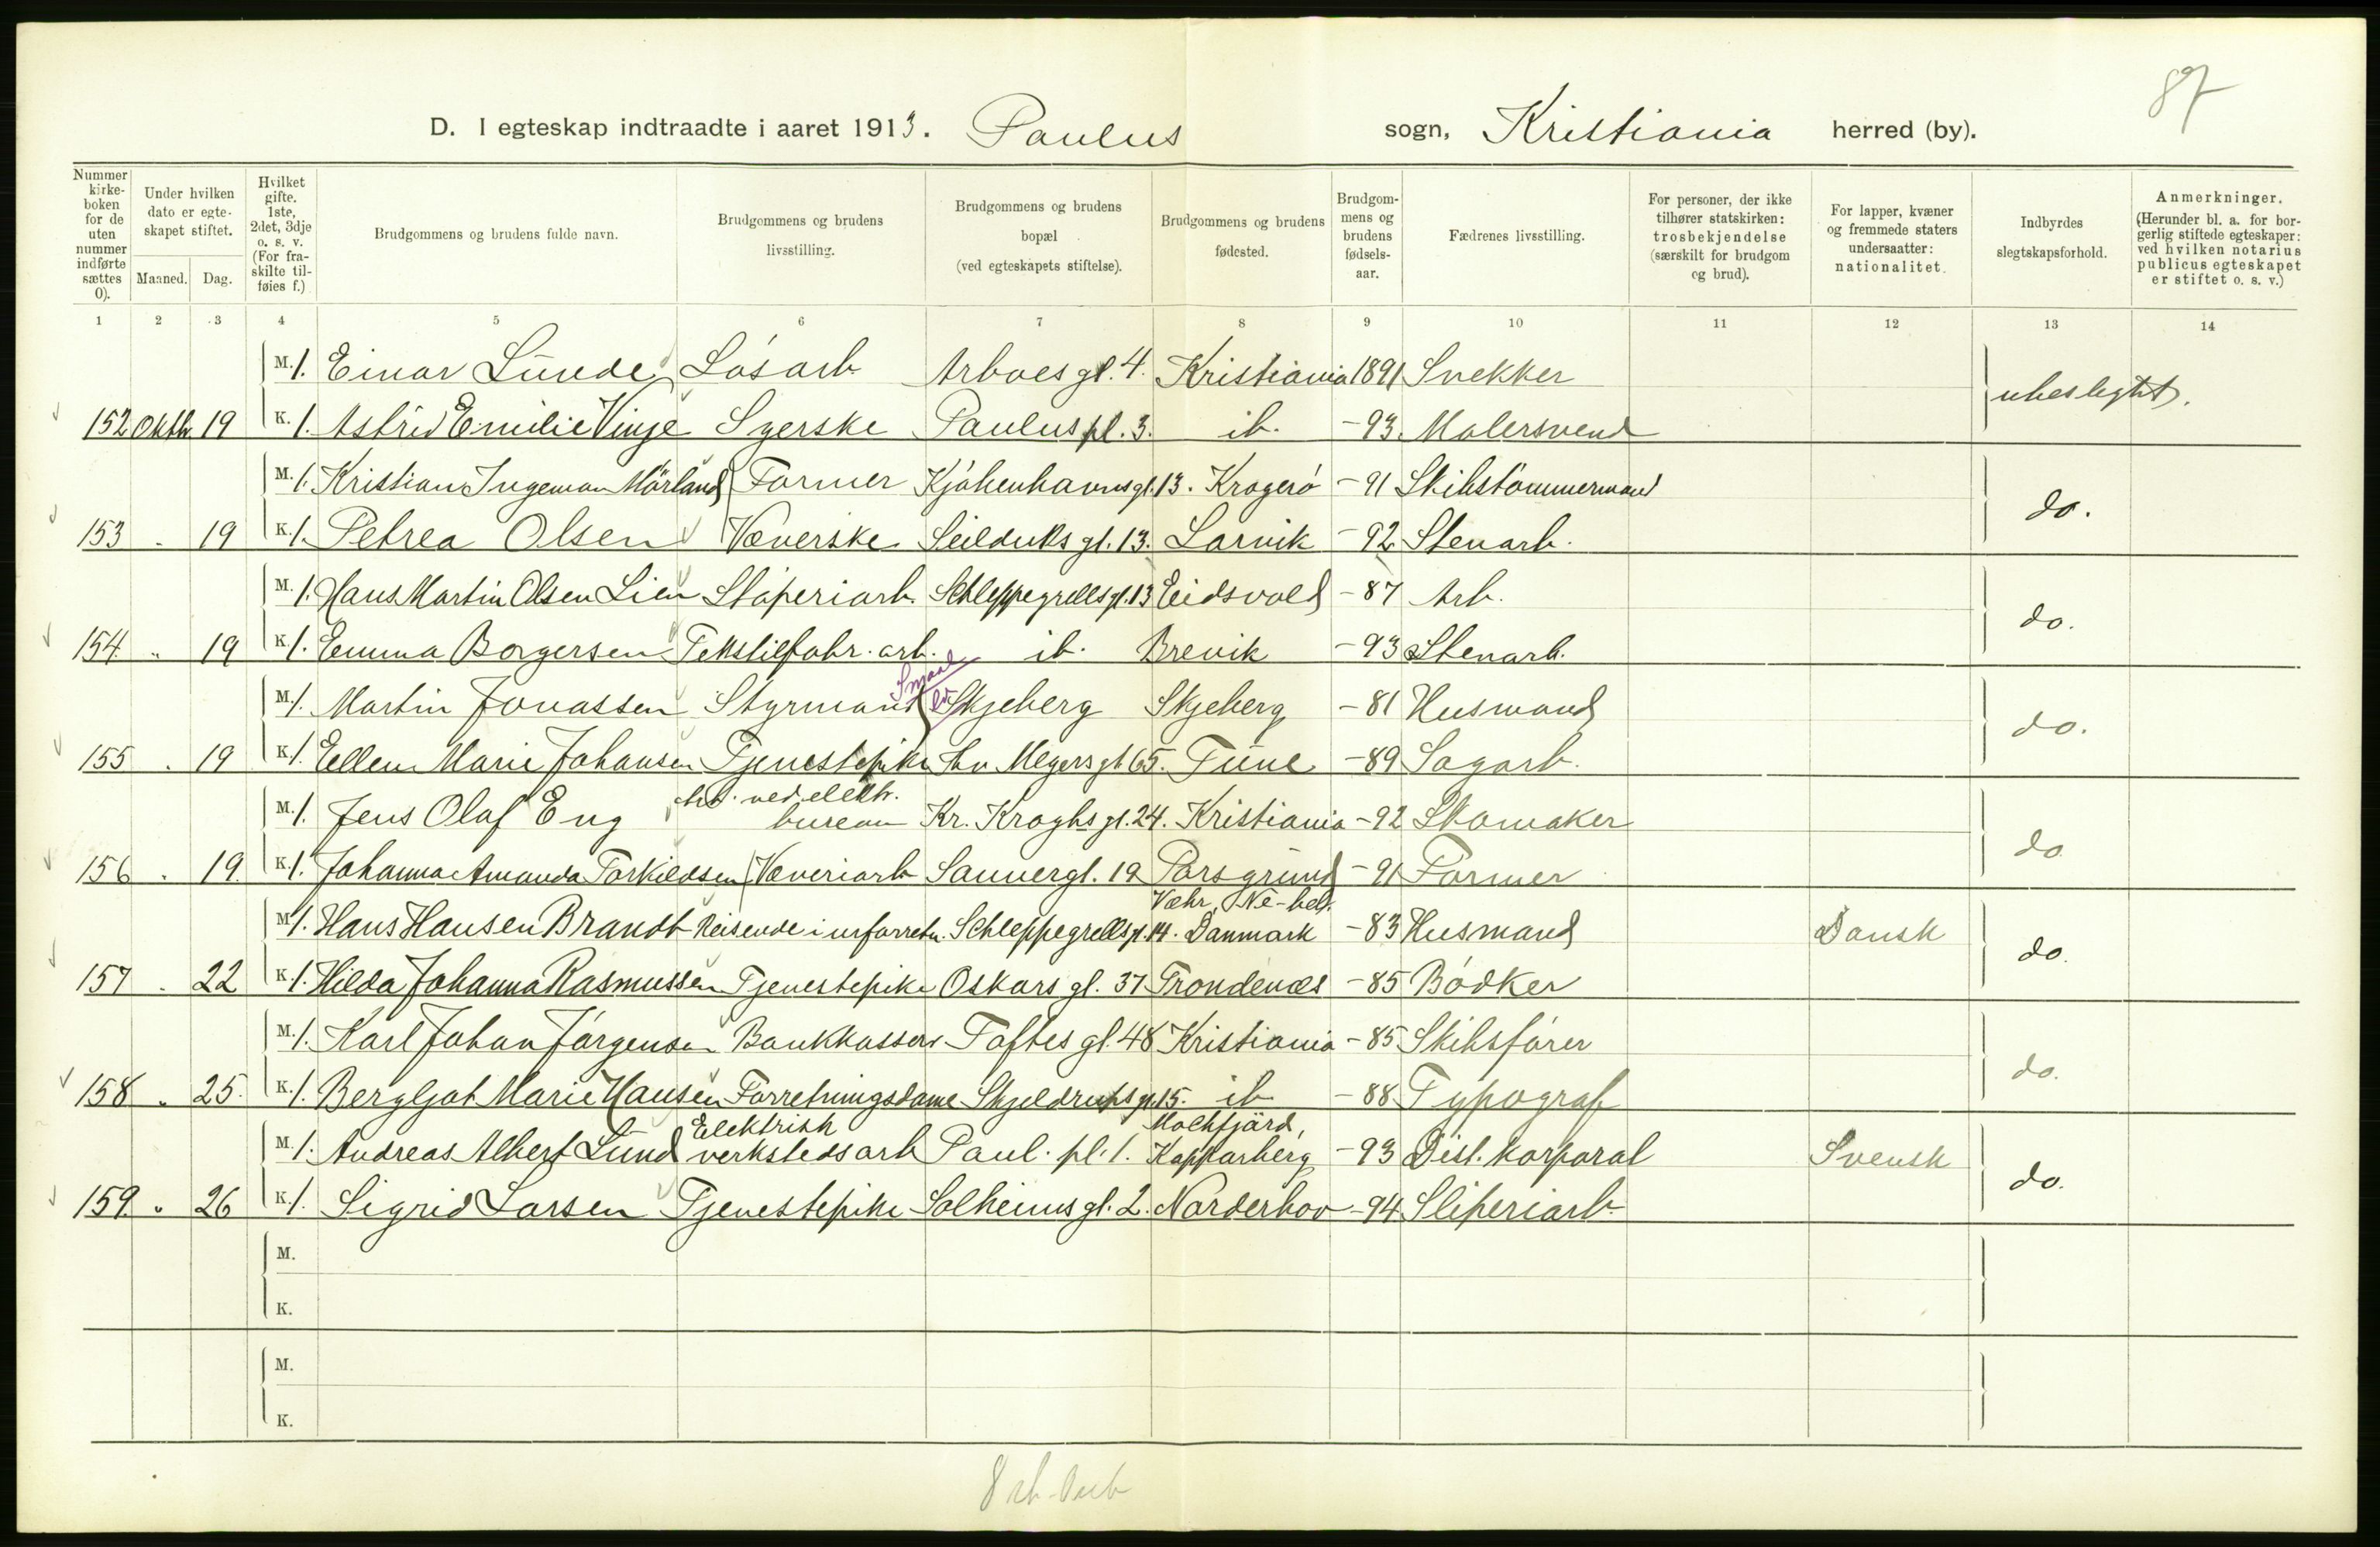 87
D. I egteskap indtraadte i aaret 1913. Paulus sogn, Kristiania herred (by).
Nummer kirkeboken for de uten nummer indførte sættes 0).
Under hvilken dato er egteskapet stiftet.
Maaned. Dag.
Hvilket gifte. 1ste, 2det, 3dje o. s. v. (For fraskilte tilføies f.)
Brudgommens og brudens fulde navn.
Brudgommens og brudens livsstilling.
Brudgommens og brudens bopæl (ved egteskapets stiftelse).
Brudgommens og brudens fødested.
Brudgommens og brudens fødselsaar.
Fædrenes livsstilling.
For personer, der ikke tilhører statskirken: trosbekjendelse (særskilt for brudgom og brud).
For lapper, kvæner og fremmede staters undersaatter: nationalitet.
Indbyrdes slegtskapsforhold.
Anmerkninger. (Herunder bl. a. for borgerlig stiftede egteskaper: ved hvilken notarius publicus egteskapet er stiftet o. s. v.)
1 2 3 4 5 6 7 8 9 10 11 12 13 14
M. 1. Einar Lunde Løsarb Arboesgt. 4. Kristiania 1891 Snekker ubeslegtet.
152 Oktbr. 19 K. 1. Astrid Emilie Vinje Syerske Pauluspl. 3. ib. -93. Malersvend
M. 1. Kristian Ingeman Mörland Former Kjøbenhavnsgt. 13. Kragerø -91 Skibstömmermand do.
153 . 19 K. 1. Petrea Olsen Væverske Seilduksgt. 13. Larvik -92 Stenarb.
M. 1. Hans Martin Olsen Lien Støperiarb. Schleppegrellsgt. 13 Eidsvold -87 Arb. do.
154 " 19 K. 1. Emma Borgersen Tekstilfabr. arb. ib. Brevik -93 Stenarb.
Smaal
M. 1. Martin Jonassen Styrmand Skjeberg Skjeberg -81 Husmand do.
155 . 19 K. 1. Ellen Marie Johansen Tjenestepike Thv Meyersgt 65. Tune -89 Sagarb.
M. 1. Jens Olaf Eng Arb. ved elektr. bureau Kr. Kroghsgt. 24. Kristiania -92 Skomaker do
156 . 19. K. 1. Johanna Amanda Torkildsen Væveriarb Sannergt. 19 Porsgrund -91 Former
M. 1. Hans Hansen Brandt Reisende i urforretn. Schleppegrellsgt. 14. Danmark -83 Husmand Dansk do.
157 . 22 K. 1. Hilda Johanna Rasmussen Tjenestepike Oskarsgt. 37 Trondenæs -85 Bødker
M. 1. Karl Johan Jørgensen Bankkasser Toftesgt. 48 Kristiania -85 Skibsfører do.
158 . 25. K. 1. Bergljot Marie Hansen Forretningsdame Skjeldrupsgt. 15. ib -88 Typograf
M. 1. Andreas Albert Lund Elektrisk verkstedsarb Paul. pl. 1. Kopparberg -93 Dist. korporal Svensk do.
159. " 26 K. 1. Sigrid Larsen Tjenestepike Solheimsgt. 2. Norderhov -94 Sliperiarb
M.
K.
M.
K.